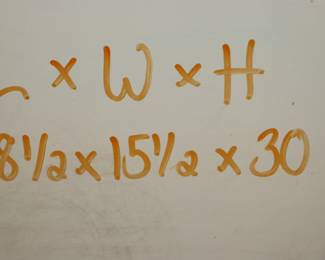 x W x H
8 1/2 x 15 1/2 x 30